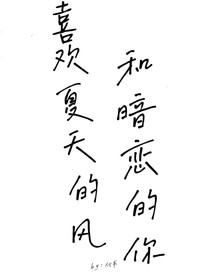 喜欢夏天的风
和暗恋的你
by: